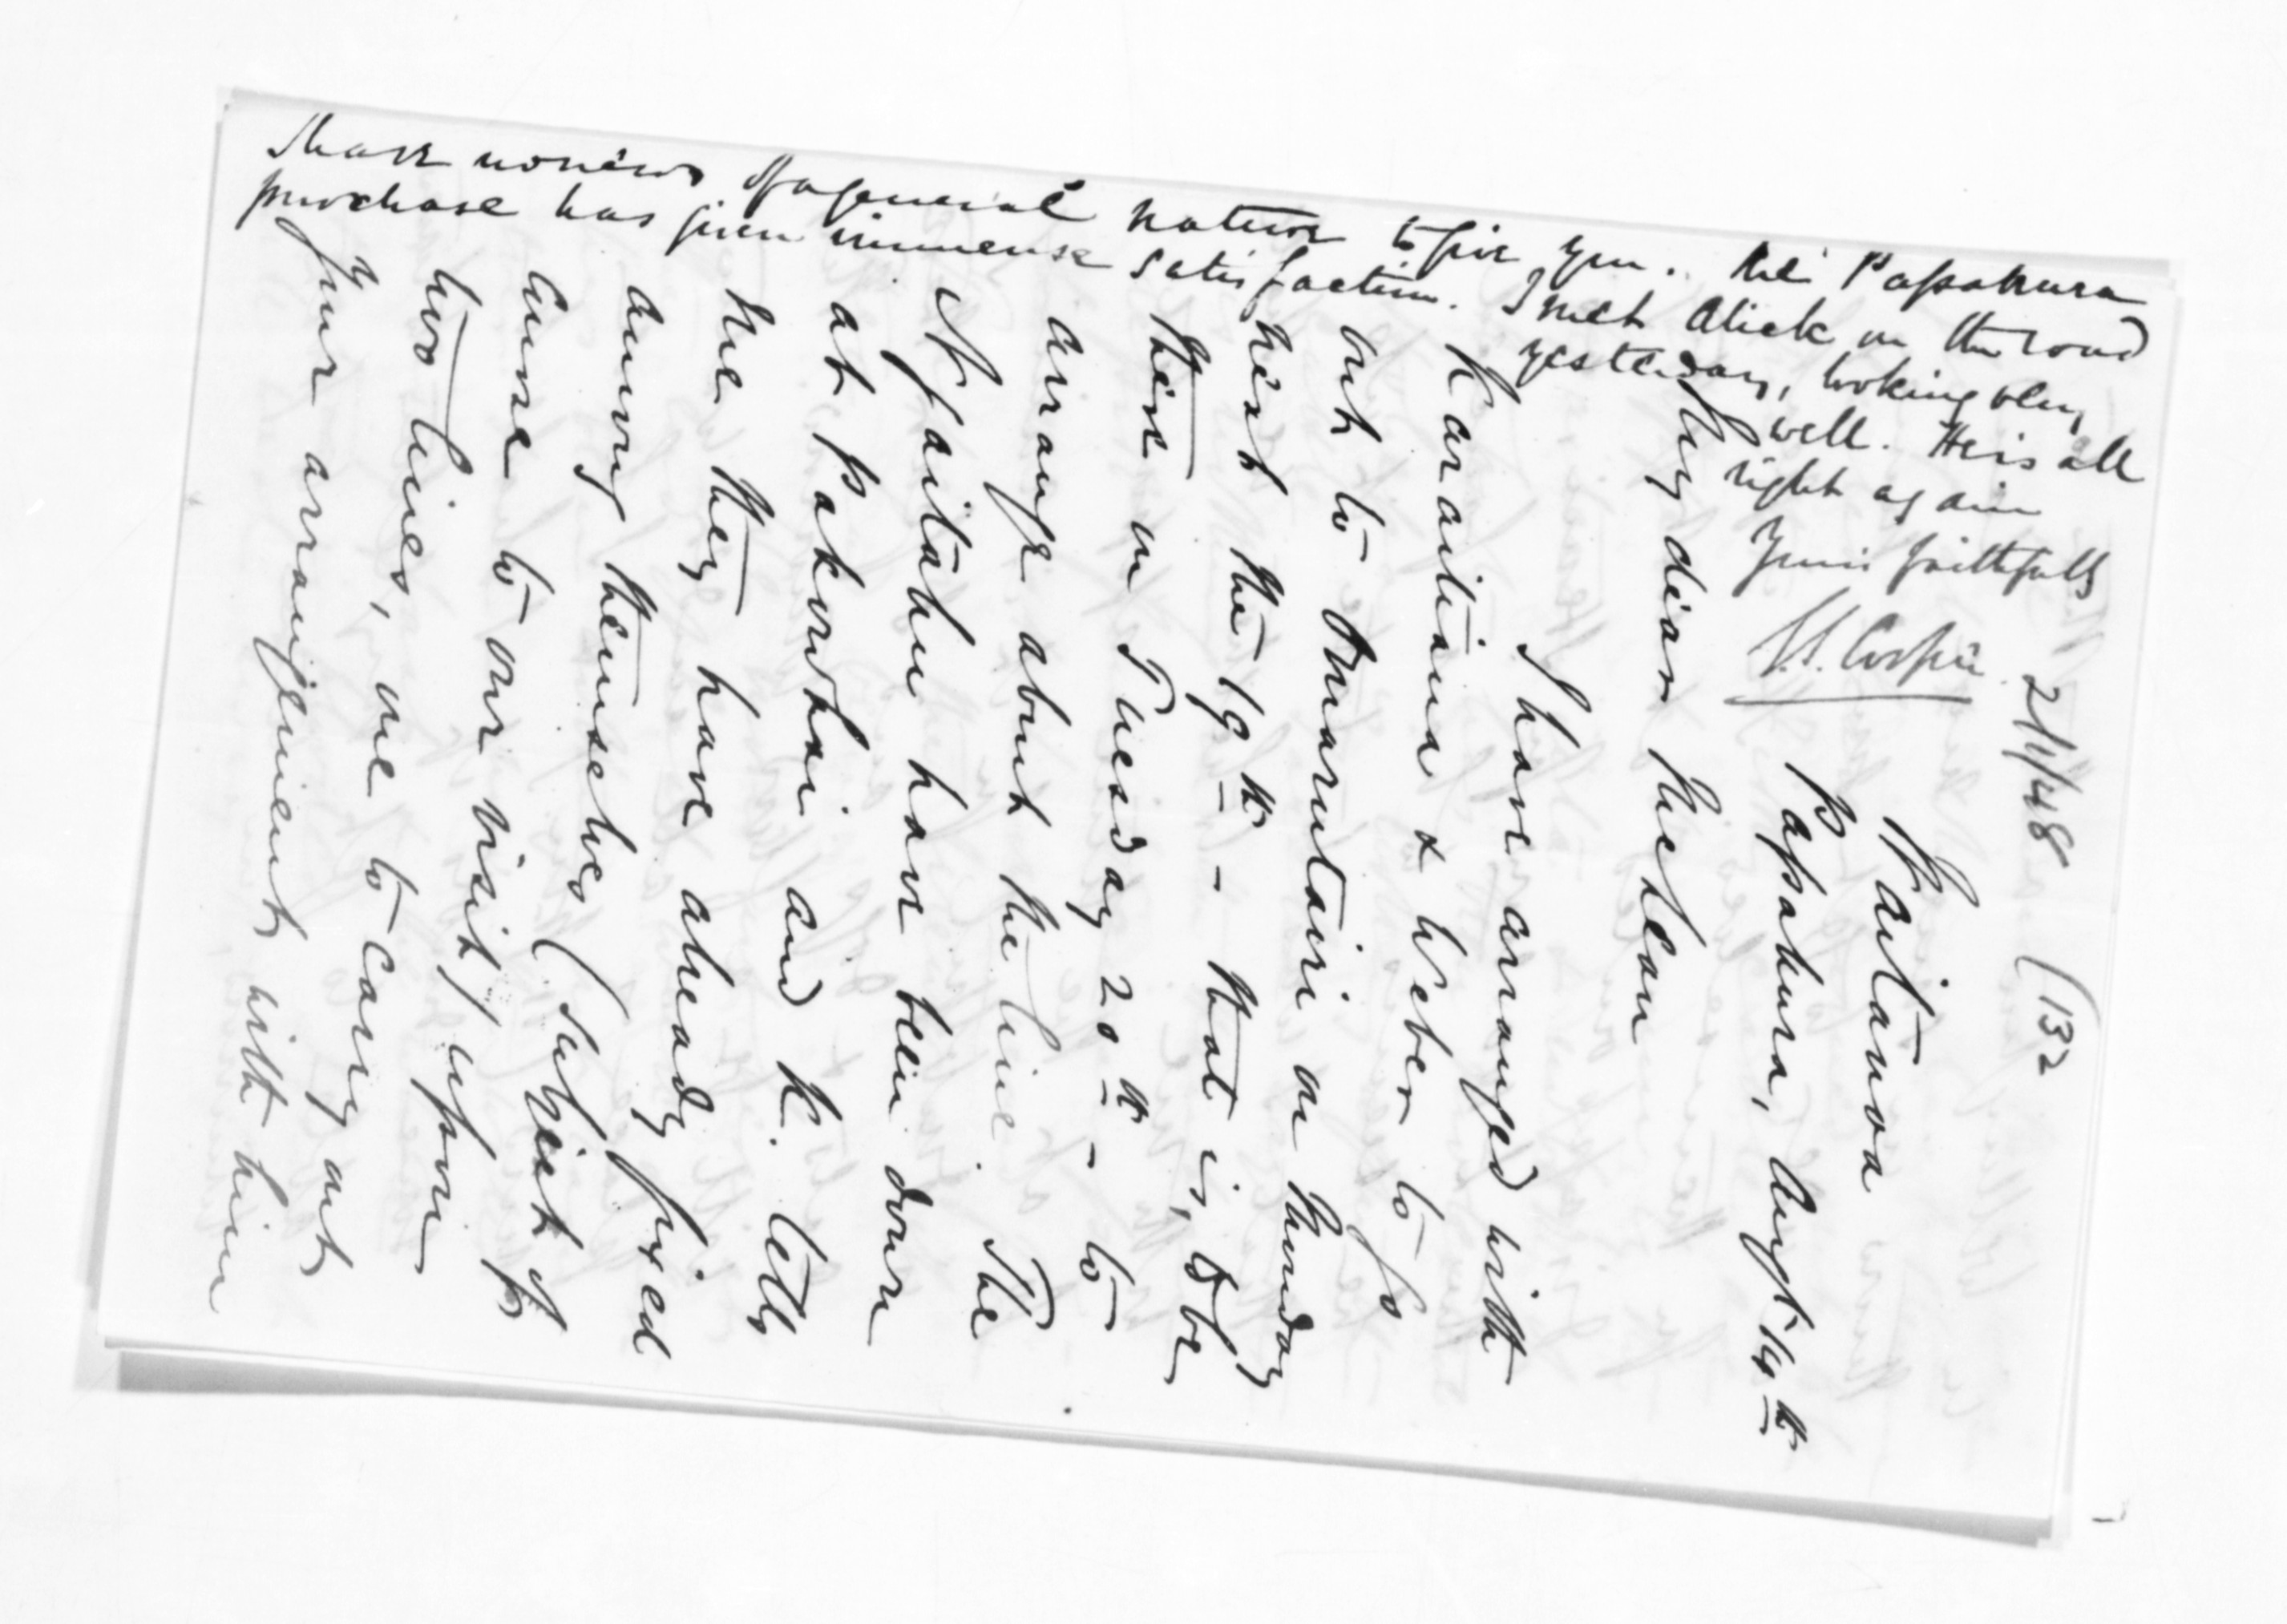 2/1/48 (132
Kaitawa
Papakura, Augt 14th
My dear McLean
I have arranged with
Karaitiana & Weber to go
out to Omarutairi on Monday
next the 19th - that is, to be
there on Tuesday 20th - to
arrange about the line. The
Ngaitahu have been down
at Pakowhai and K. tells
me they have already fixed
among themselves (subject of
course to our visit) upon
two lines, one to carry out
your arrangement with him
I have no news of a general nature to give you. The Papakura
purchase has given immense satisfaction. I met Alick on the road
yesterday, looking very
well. He is all
right again
Yours faithfully